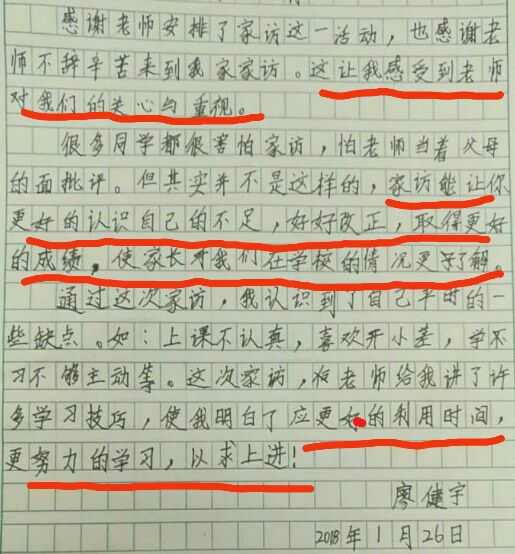 感谢老师安排了家访这一活动，也感谢老
师不辞辛苦来到我家家访。这让我感受到老师
对我们的关心与重视。
很多同学都很害怕家访，怕老师当着父母
的面批评。但其实并不是这样的，家访能让你
更好的认识自己的不足，好好改正，取得更好
的成绩，使家长对我们在学校的情况更了解。
通过这次家访，我认识到了自己平时的一
些缺点。如：上课不认真，喜欢开小差，学不
习不够主动等。这次家访，老师给我讲了许
多学习技巧，使我明白了应更好的利用时间，
更努力的学习，以求上进！
廖健宇
2018年1月26日